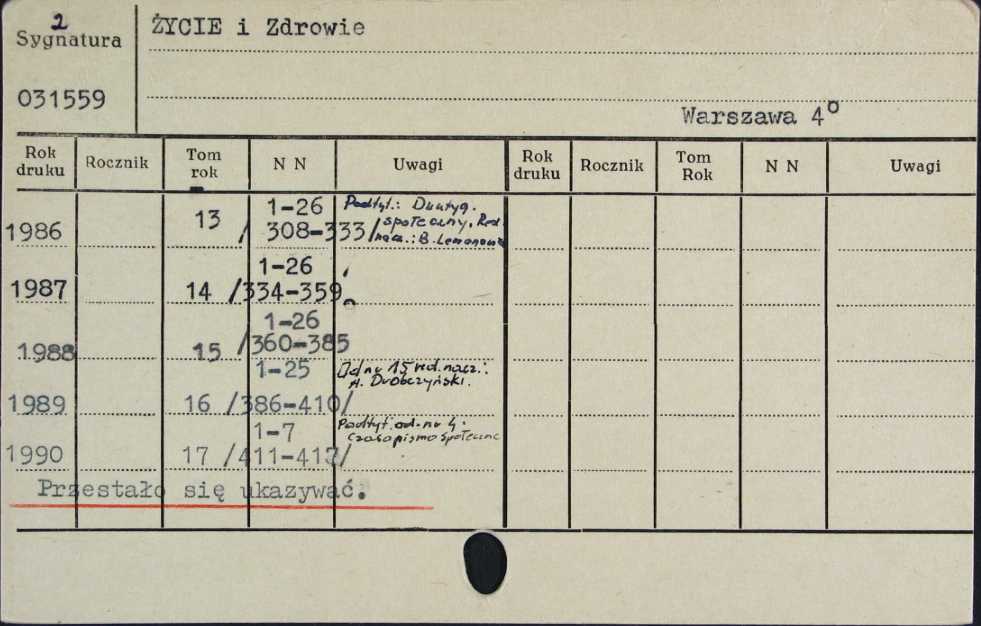 2
ŻYCIE i Zdrowie
Sygnatura
031559
Warszawa 4°
Rok druku Rocznik Tom rok N N Uwagi Rok druku Rocznik Tom Rok N N Uwagi
1-26 Podtyt.: Dwutyg.
1986 13 / 308-333/ społeczny. Red.
nacz.: B.
1-26
1987 14 /334-359
1-26
1988 15 /360-385
1-25 Od nr 15 red. nacz.:
A. Drobczyński.
1989 16 /386-410/
1-7 Podtyt. od nr 4:
czasopismo społeczne
1990 17 /411-417/
Przestało się ukazywać.